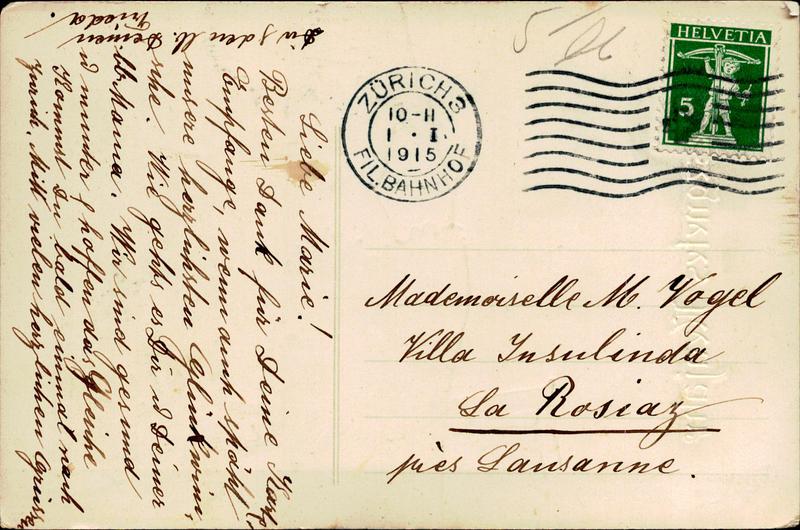 Liebe Marie!
Besten Dank für Deine Karte
Empfange, wenn auch spät
unsere herzlichsten Glückwün-
sche. Wie gehts es Dir u Deiner
lb. Mama. Wir sind gesund
u munter, hoffen das Gleiche
Kommst Du bald einmal nach
Zürich. Mit vielen herzlichen Grüsse
Deinen
Frieda.
ZÜRICH 3
10-11
1.I.
1915
FIL. BAHNHOF
HELVETIA
5
Mademoiselle M. Vogel
Villa Insulinda
La Rosiaz
près Lausanne.